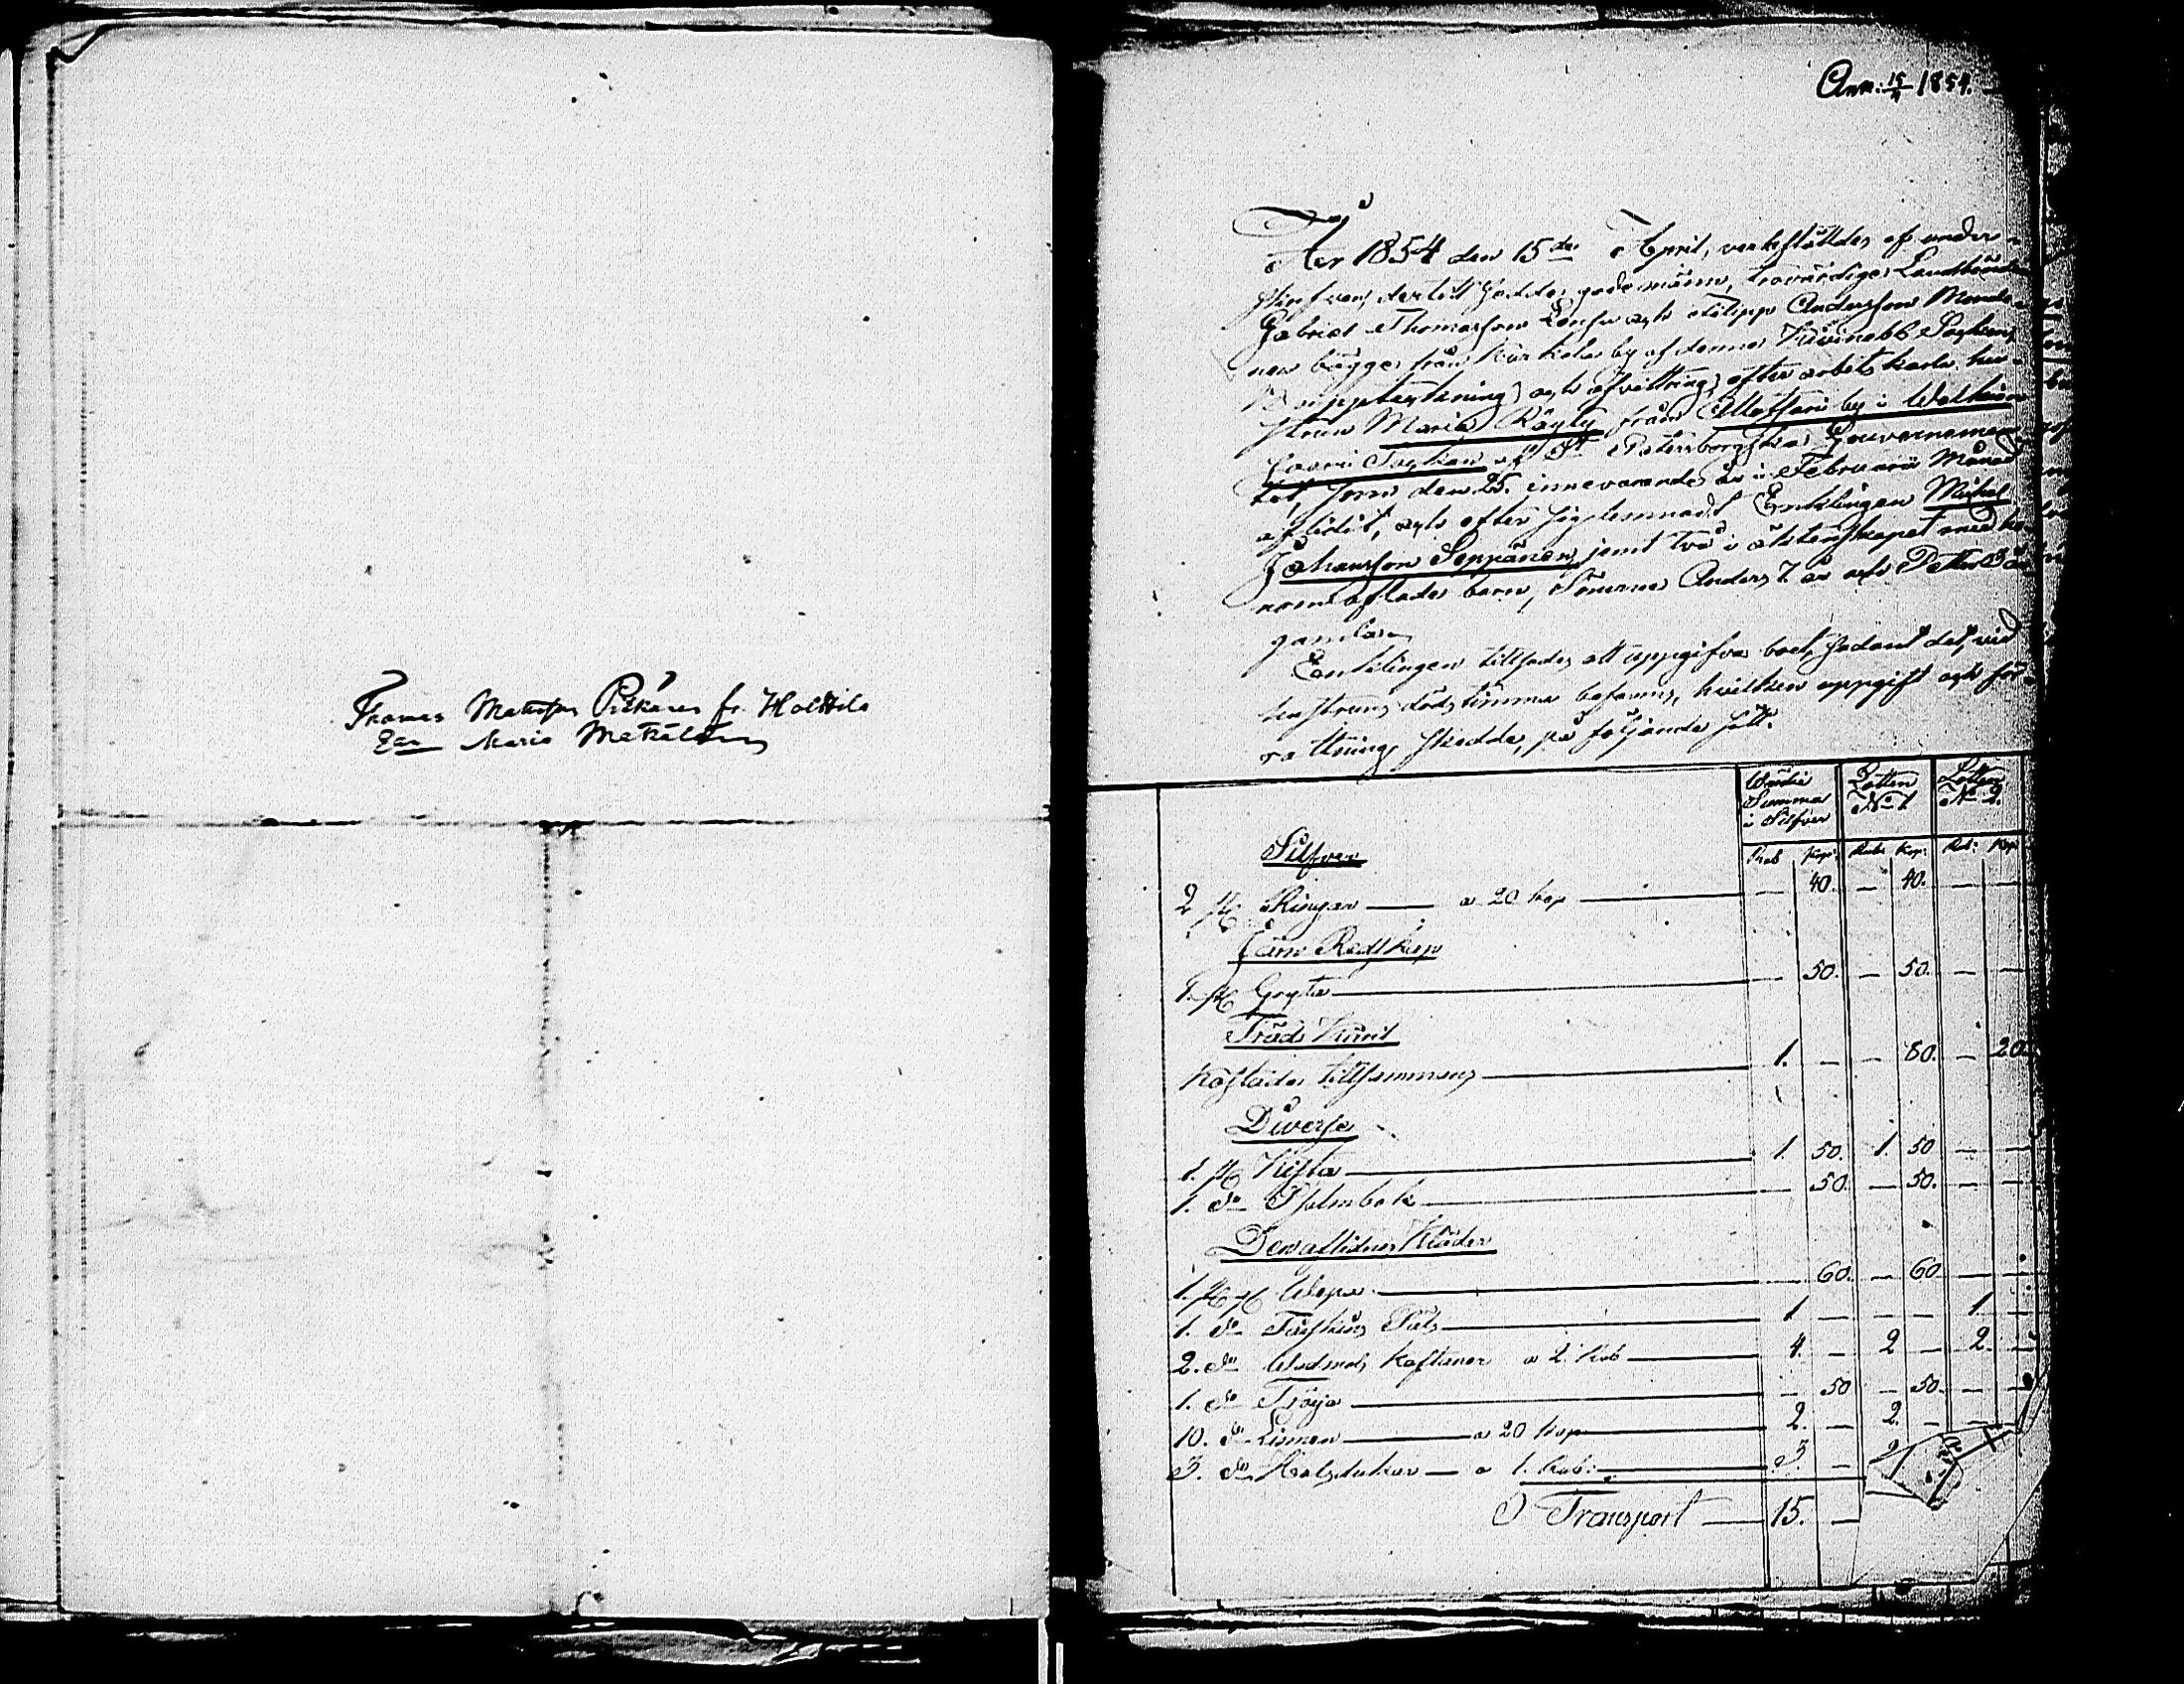 Thomas Matts son Pitkänen fr. Holttila
Enn Maria Mskälnen
Ann: 15/4 1854.
År 1854 den 15de April, verkställdes af under-
skrefvan, dertill kallade godemänn, trovärdige Landtbönder
Gabriel Thomasson och Filipp Andersson
nen bägge från Kurkela by af denna Kivinebb Sockn
Bouppteckning och afvittring, efter arbetskarls hu-
strun Maria Räyty från by i Walkia-
saari Sockn af St Petersborgska Gouvernemen-
tet, som den 25. innevarande år i Februarii Månad
aflidit, och efter sig lemnadt Enklingen Michel
Johansson Seppänen, jemt två i äktenskapet med ho-
nom aflade barn, Sönerne Anders 7 år och Petter 3 år
gamla.
Enklingen tillsades att uppgifva boet, sådant det, vid
hustruns dödstimma befanns, hvilken uppgift och för-
rättning skedde, på följande sätt.
Wärde Summa i Silfver Lotten No 1 Lotten No 2.
Rub Kop: Rub: Kop: Rub: Kop
Silfver
2 st Ringar — a 20 kop — — 40. — 40. — —
Järn Redskap
1. st Gryta — — 50. — 50. — —
Träds Käril
Kostäder tillsammans — 1. — — 80. — 20
Diverse
1. st Kista — 1. 50. 1. 50 — —
1. do Psalmbok — — 50. — 50. — —
Den aflidnes Kläder
1. st — 60. — 60 — —
1. do Fårskins Päls — 1 — — — 1. —
2. do Wadmals Kaftaner a 2. Rub — 4. — 2 — 2. —
1. do Tröja — — 50 — 50 — —
10. do — a 20 kop — 2. — 2. — — —
3. do Halsdukar — a 1. Rub: — 3. — 2
Transport — 15. —